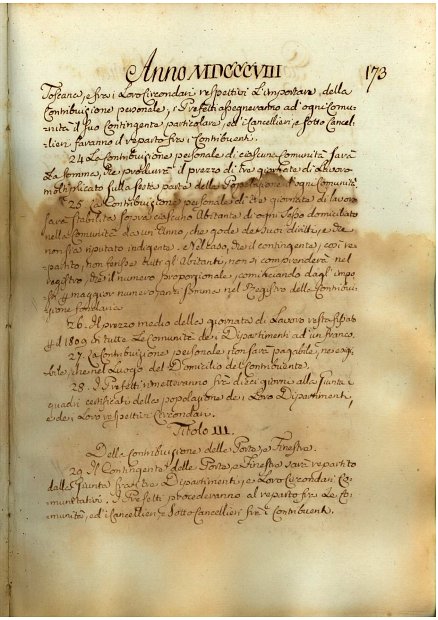 Anno MDCCCVIII 173
Toscana, e fra i Loro Circondari respettivi L'importare della
Contribuzione personale, i Prefetti assegneranno ad ogni Comu-
nità il suo Contingente particolare, ed i Cancellieri, e Sotto Cancel-
lieri faranno il reparto fra i Contribuenti.
24. La Contribuzione personale di ciascuna Comunità sarà
La somma, che produrrà il prezzo di tre giornate di Lavoro
moltiplicato sulla sesta parte della Popolazione d'ogni Comunità
25. La Contribuzione personale di tre giornate di lavoro
sarà stabilita sopra ciascuno Abitante di ogni sesso domiciliato
nella Comunità da un'Anno, che gode de suoi diritti, e che
non sia reputato indigente. Nel caso, che il contingente, così re-
partito, non tenesse tutti gl'Abitanti, non si comprenderà nel
registro, che il numero proporzionale, cominciando dagl'impo-
sti p maggior somma nel Registro della Contribu-
zione fondiaria
26. Il prezzo medio della giornata di Lavoro resta fissato
p il 1809. di tutte Le Comunità dei Dipartimenti ad un franco.
27. La Contribuzione personale non sarà pagabile, nè esigi-
bile, che nel Luogo del Domicilio del Contribuente.
28. I Prefetti rimetteranno fra dieci giorni alla Giunta i
quadri certificati della popolazione dei Loro Dipartimenti,
e dei Loro respettivi Circondari.
Titolo III.
Della Contribuzione delle Porte, e Finestre.
29. Il Contingente delle Porte, e Finestre sarà repartito
dalla Giunta fra i tre Dipartimenti, e Loro Circondari Co-
munitativi. I Prefetti procederanno al reparto fra Le Co-
munità, ed i Cancellieri, e Sotto Cancellieri fra i Contribuenti.